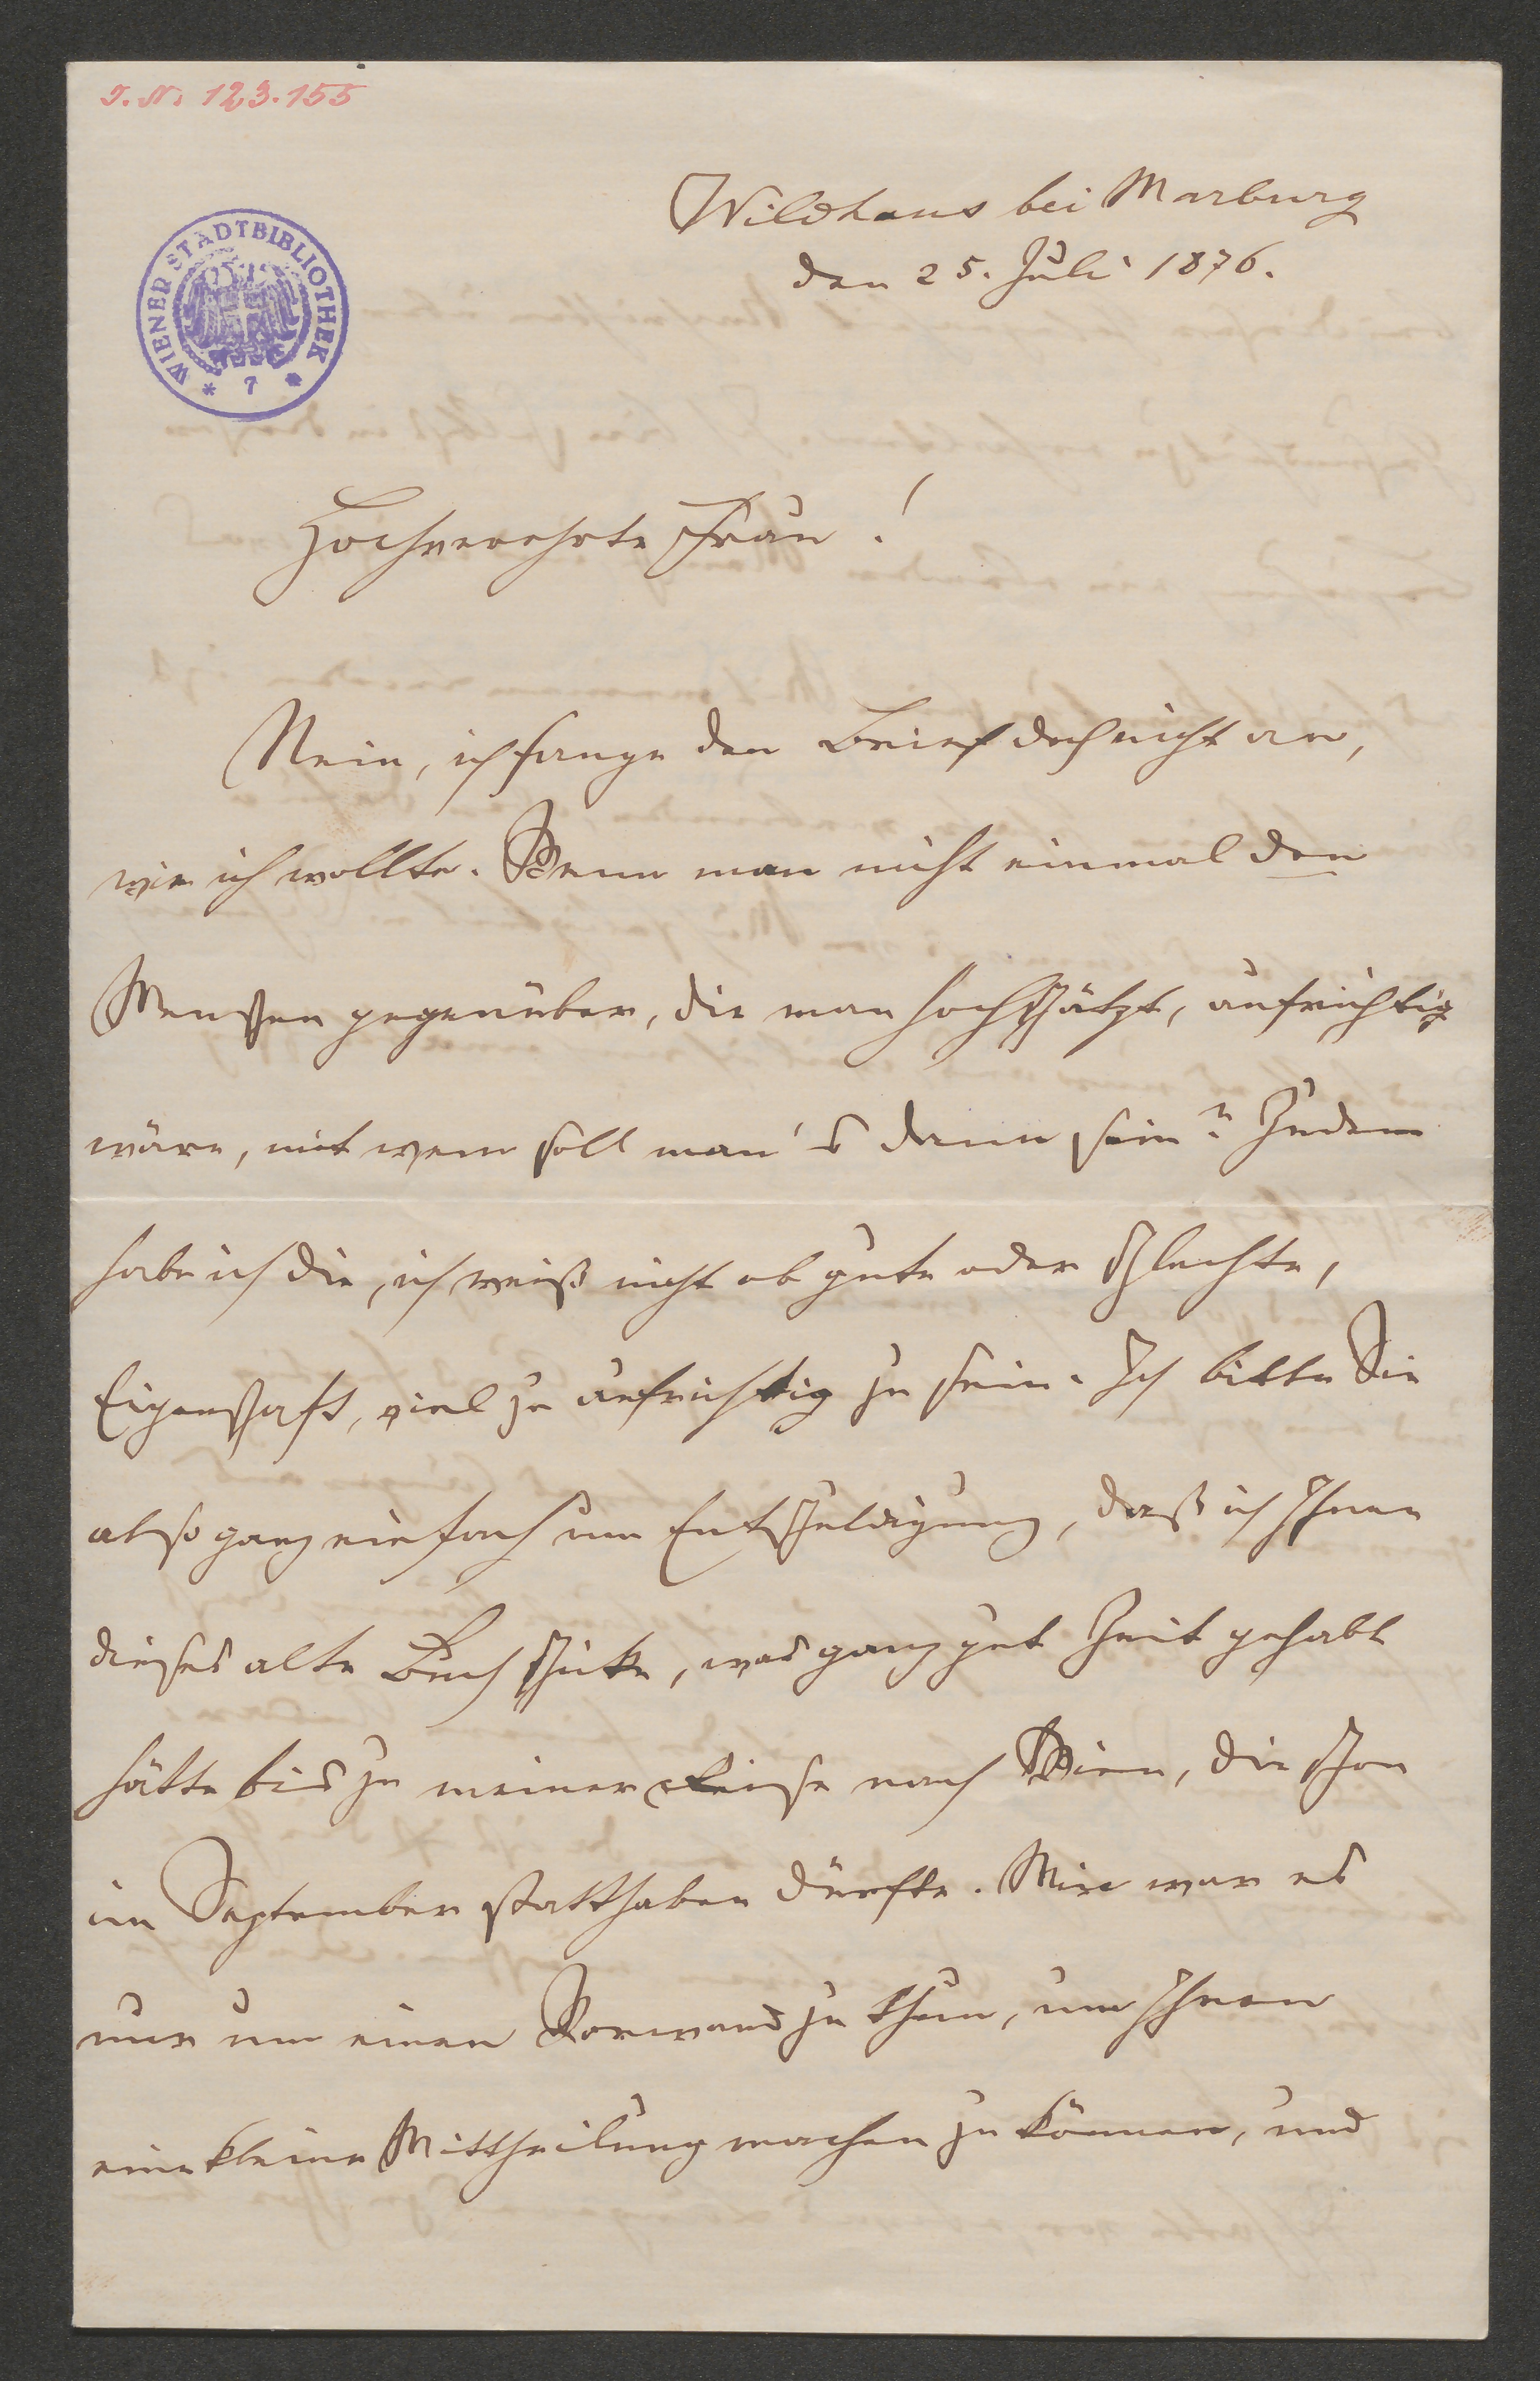 I. N. 123.155
WIENER STADTBIBLIOTHEK
* 7 *
Wildhaus bei Marburg
den 25. Juli 1876.
Hochverehrte Frau!
Nein, ich fange den Brief doch nicht an,
wie ich wollte. Wenn man nicht einmal den
Menschen gegenüber, die man hochschätzt, aufrichtig
wäre, mit wem soll man's dann sein? Zudem
habe ich die, ich weiß nicht ob gute oder schlechte,
Eigenschaft, viel zu aufrichtig zu sein. Ich bitte Sie
also ganz einfach um Entschuldigung, daß ich Ihnen
dieses alte Buch schicke, was ganz gut Zeit gehabt
hätte bis zu meiner Reise nach Wien, die schon
im September statthaben dürfte. Mir war es
nur um einen Vorwand zu thun, um Ihnen
eine kleine Mittheilung machen zu können, und